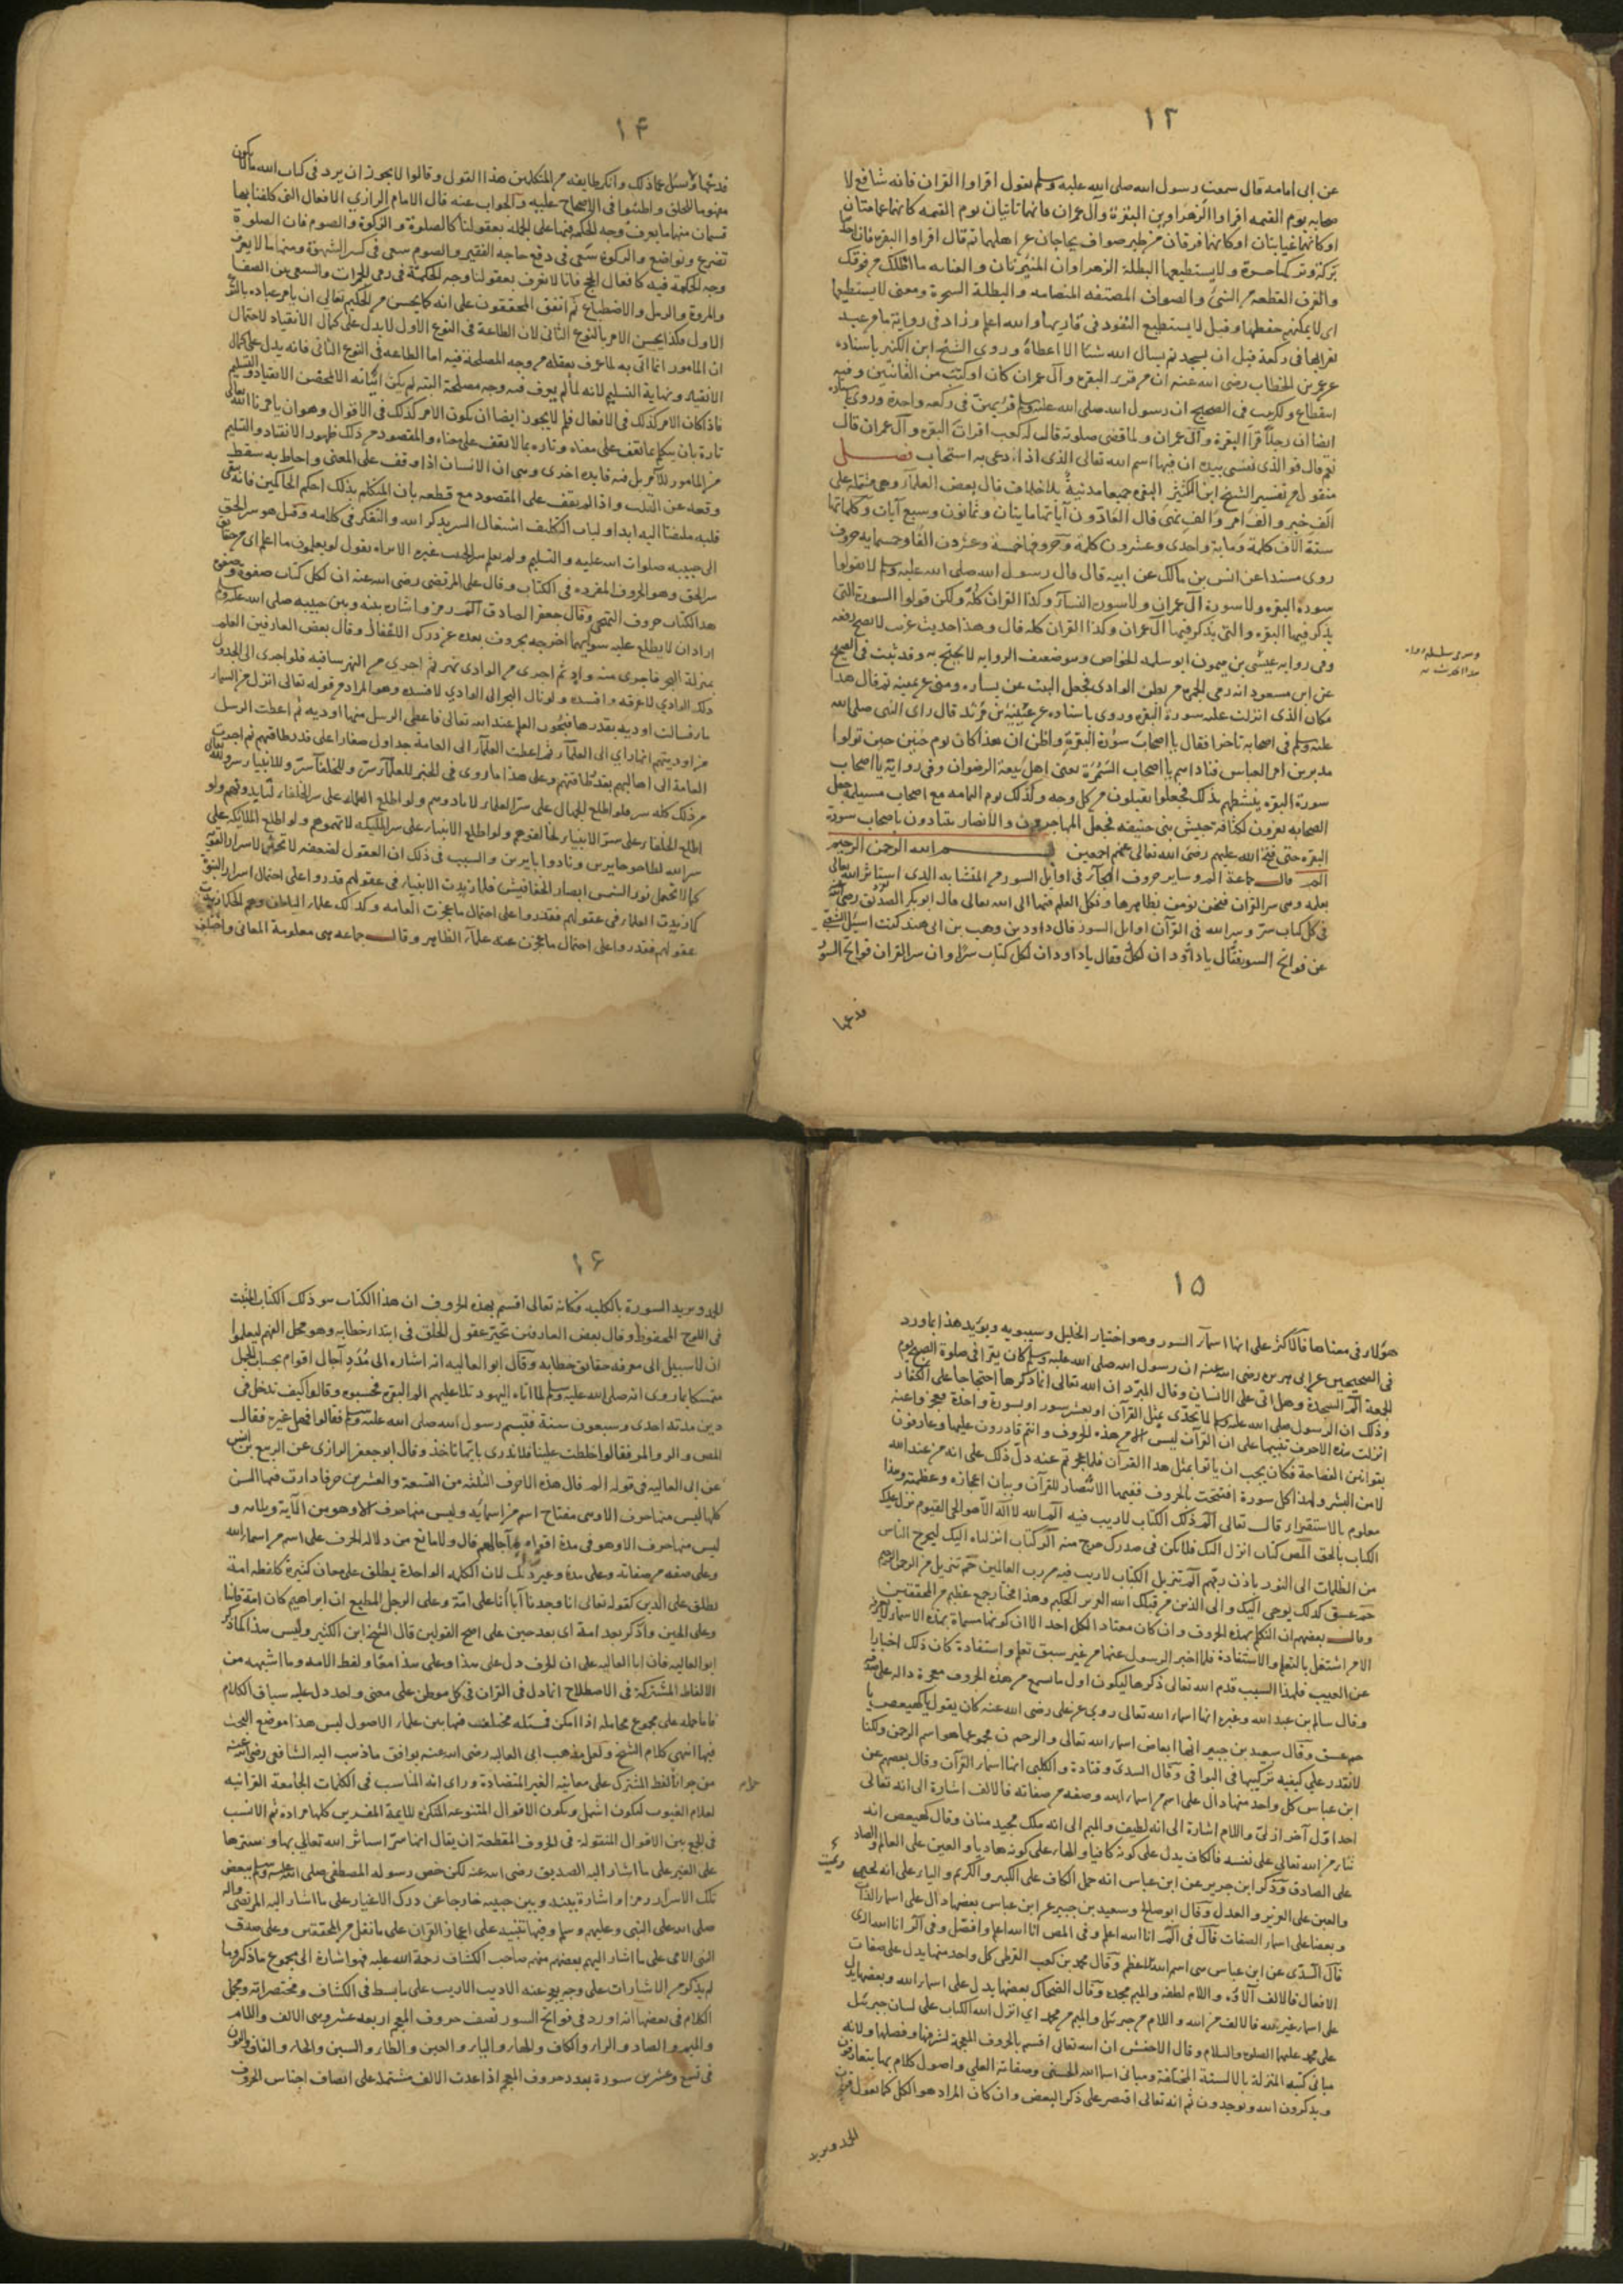 ١٣
عن ابى امامه قال سمعت رسول الله صلى الله عليه وسلم يقول اقراوا القران فانه شافع لا
صحابه يوم القيمه اقراوا الزهراوين البقرة وآل عمران فانهما تاتيان يوم القيمه كانهما غمامتان
او كانهما غيايتان او كانهما فرقان من طير صواف يحاجان عن اهلهما ثم قال اقراوا البقره فان اخذها
بركة وتركها حسرة ولا يستطيعها البطلة الزهراوان المنيرتان والغيايه ما اظلك من فوقك
والفرق القطعه من الشئ والصواف المصتفه المتضامه والبطلة السحرة ومعنى لا يستطيعها
اى لا يمكنهم حفظها وقيل لا يستطيع النفوذ فى قاريها والله اعلم وزاد فى رواية ما من عبد
يقرابها فى ركعة قبل ان يسجد ثم يسال الله شيئا الا اعطاه وروى الشيخ ابن الكثير باسناده
عن عمر بن الخطاب رضى الله عنه ان من قرا البقره وآل عمران كان او كتب من القانتين وفيه
انقطاع ولكن ثبت فى الصحيح ان رسول الله صلى الله عليه وسلم قرا بهن فى ركعة واحدة وروى باسناده
ايضا ان رجلا قرا البقرة وآل عمران ولما قضى صلوته قال له كعب اقرات البقره وآل عمران قال
نعم قال فو الذى نفسى بيده ان فيها اسم الله تعالى الذى اذا دعى به استجاب فصل
منقول من تفسير الشيخ ابن الكثير البقره جميعا مدنية بلا خلاف قال بعض العلمآء وهى مشتملة على
الف خبر والف امر والف نهى قال العادّون آياتها مايتان وثمانون وسبع آيات وكلماتها
ستة الاف كلمة ومايه واحدى وعشرون كلمة وحروفها خمسة وعشرون الفا وخمسمايه حرف
روى مسندا عن انس بن مالك عن ابيه قال قال رسول الله صلى الله عليه وسلم لا تقولوا
سورة البقره ولا سورة آل عمران ولا سورة النسآء وكذا القران كله ولكن قولوا السورة التى
يذكر فيها البقره والتى يذكر فيها آل عمران وكذا القران كله قال وهذا حديث غريب لا يصح رفعه
وفى روايه عيسى بن ميمون ابو سلمه الخواص وهو ضعيف الروايه لا يحتج به وقد ثبت فى الصحيح
عن ابن مسعود انه رمى الجمره من بطن الوادى فجعل البيت عن يساره ومنى عن يمينه ثم قال هذا
مكان الذى انزلت عليه سورة البقره وروى باسناده عن عتيبة بن مرثد قال راى النبى صلى الله
عليه وسلم فى اصحابه تاخرا فقال يا اصحاب سورة البقرة واظن ان هذا كان يوم حنين حين تولوا
مدبرين امر العباس فناداهم يا اصحاب السمرة يعنى اهل بيعة الرضوان وفى رواية يا اصحاب
سورة البقره ينشطهم بذلك فجعلوا يقبلون من كل وجه وكذلك يوم اليمامه مع اصحاب مسيلمة جعل
الصحابه يفرون لكثافة جيش بنى حنيفه فجعل المهاجرون والانصار يتنادون يا صحاب سورة
البقره حتى فتح الله عليهم رضى الله تعالى عنهم اجمعين بسم الله الرحمن الرحيم
الم قال جماعة الم وساير حروف الهجآء فى اوايل السور من المتشابه الذى استاثر الله تعالى
بعلمه وهى سر القران فنحن نؤمن بظاهرها ونكل العلم فيها الى الله تعالى قال ابو بكر الصديق رضى الله عنه
فى كل كتاب سرّ وسر الله فى القرآن اوايل السور قال داود بن وهب بن ابى هند كنت اسئل الشعبى
عن فواتح السور فقال يا داود ان لكل كتاب سرّا وان سر القران فواتح السور
فدعها
١٤
فدعها واسئل عما ذلك وانكر طايفه من المتكلمين هذا القول وقالوا لا يجوز ان يرد فى كتاب الله ما لا يكون
مفهوما للخلق واطنبوا فى الاحتجاج عليه والجواب عنه قال الامام الرازي الافعال التى كلفنا بها
قسمان منها ما يعرف وجه الحكمة فيها على الجملة بعقولنا كالصلوة والزكوة والصوم فان الصلوة
تضرع وتواضع والزكوة سعى فى دفع حاجه الفقير والصوم سعى فى كسر الشهوة ومنها ما لا يعرف
وجه الحكمة فيه كافعال الحج فانا لا نعرف بعقولنا وجه الحكمة فى رمى الجمرات والسعى بين الصفا
والمروة والرمل والاضطباع ثم اتفق المحققون على انه كما يحسن من الحكيم تعالى ان يامر عباده بالنوع
الاول فكذا يحسن الامر بالنوع الثانى لان الطاعة فى النوع الاول لا يدل على كمال الانقياد لاحتمال
ان المامور انما اتى به لما عرف بعقله من وجه المصلحة فيه اما الطاعه فى النوع الثانى فانه يدل على كمال
الانقياد ونهاية التسليم لانه لما لم يعرف فيه وجه مصلحة البته لم يكن اتيانه الا لمحض الانقياد والتسليم
فاذا كان الامر كذلك فى الافعال فلم لا يجوز ايضا ان يكون الامر كذلك فى الاقوال وهو ان يامرنا الله تعالى
تارة بان نتكلم بما نقف على معناه وتاره بما لا نقف على معناه والمقصود من ذلك ظهور الانقياد والتسليم
من المامور للآمر بل فيه فايده اخرى وهى ان الانسان اذا وقف على المعنى واحاط به سقط
وقعه عن القلب واذا لم يقف على المقصود مع قطعه بان المتكلم بذلك احكم الحاكمين فانه يبقى
قلبه ملتفتا اليه ابدا ولباب التكليف اشتغال السر بذكر الله والتفكر فى كلامه وقيل هو سر الحق
الى حبيبه صلوات الله عليه والتسليم ولم يعلم سر الحبيب غيره الا تراه يقول لو يعلمون ما اعلم اى من حقايق
سر الحق وهو الحروف المفرده فى الكتاب وقال على المرتضى رضى الله عنه ان لكل كتاب صفوة وصفوة
هذا الكتاب حروف التهجى وقال جعفر الصادق الم رمز واشارة بينه وبين حبيبه صلى الله عليه وسلم
اراد ان لا يطلع عليه سواهما اخرجه بحروف بعده عن درك الاغفال وقال بعض العارفين العلم
بمنزلة البحر فاجرى منه واد ثم اجرى من الوادى نهر ثم اجرى من النهر ساقيه فلو اجرى الى الجدول
ذلك الوادي لاغرقه وافسده ولو نال البحر الى الوادي لافسده وهو المراد من قوله تعالى انزل من السمآء
مآء فسالت اوديه بقدرها فبحور العلم عند الله تعالى فاعطى الرسل منها اوديه ثم اعطت الرسل
من اوديتهم انهارا ي الى العلمآء ثم اعطت العلمآء الى العامة جداول صغارا على قدر طاقتهم ثم اجرت
العامة الى اهاليهم بقدر طاقتهم وعلى هذا ما روى فى الخبر للعلمآء سرّ وللخلفآء سرّ وللانبياء سر ولله تعالى
من ذلك كله سر فلو اطلع الجهال على سرّ العلماء لابادوهم ولو اطلع العلماء على سر الخلفاء لنابذوهم ولو
اطلع الخلفاء على سرّ الانبياء لخالفوهم ولو اطلع الانبياء على سر الملئيكه لاتهموهم ولو اطلع الملائكه على
سر الله لطاحوا حايرين وبادوا بايرين والسبب فى ذلك ان العقول لضعيفه لا تحتمل الاسرار القوية
كما لا تحتمل نور الشمس ابصار الخفافيش فلما زيدت الانبياء فى عقولهم قدروا على احتمال اسرار النبوة
كما زيدت العلماء فى عقولهم فقدروا على احتمال ما عجزت العامه وكذلك علماء الباطن وهم الحكماء زيدت
عقولهم فقدروا على احتمال ما عجزت عنه علمآء الظاهر وقال جماعه هى معلومة المعانى واختلف
١٥
هؤلاء فى معناها فالاكثر على انها اسمآء السور وهو اختيار الخليل وسيبويه ويؤيد هذا بما ورد
فى الصحيحين عن ابى هريرة رضى الله عنه ان رسول الله صلى الله عليه وسلم كان يقرا فى صلوة الصبح يوم
الجمعة الم السجدة وهل اتى على الانسان وقال المبرّد ان الله تعالى انما ذكرها احتجاجا على الكفار
وذلك ان الرسول صلى الله عليه وسلم لما تحدّى بمثل القرآن او بعشر سور او بسورة واحدة فعجزوا عنه
انزلت هذه الاحرف تنبيها على ان القرآن ليس الا من هذه الحروف وانتم قادرون عليها وعارفون
بقوانين الفصاحة فكان يجب ان ياتوا بمثل هذا القرآن فلما عجزتم عنه دلّ ذلك على انه من عند الله
لا من البشر ولهذا كل سورة افتتحت بالحروف ففيها الانتصار للقرآن وبيان اعجازه وعظمته وهذا
معلوم بالاستقراء قال تعالى الم ذلك الكتاب لا ريب فيه الم الله لا اله الا هو الحى القيوم نزل عليك
الكتاب بالحق المص كتاب انزل اليك فلا يكن فى صدرك حرج منه الر كتاب انزلناه اليك ليخرج الناس
من الظلمات الى النور باذن ربهم الم تنزيل الكتاب لا ريب فيه من رب العالمين حم تنزيل من الرحمن الرحيم
حم عسق كذلك يوحى اليك والى الذين من قبلك الله العزيز الحكيم وهذا مختار جمع عظيم من المحققين
وقال بعضهم ان التكلم بهذه الحروف وان كان معتادا لكل احد الا ان كونها مسماة بهذه الاسماء لا يعرفه
الا من اشتغل بالتعلم والاستفادة فلما اخبر الرسول عنها من غير سبق تعلم واستفادة كان ذلك اخبارا
عن الغيب فلهذا السبب قدم الله تعالى ذكرها ليكون اول ما يسمع من هذه الحروف معجزة دالة على صدقه
وقال سالم بن عبد الله وغيره انها اسماء الله تعالى روى عن على رضى الله عنه كان يقول يا كهيعص يا
حم عسق وقال سعيد بن جبير انها ابعاض اسماء الله تعالى والرحم ن مجموعها هو اسم الرحمن ولكنا
لا نقدر على كيفيه تركيبها فى البواقى وقال السدى وقتادة والكلبى انها اسماء القرآن وقال بعضهم عن
ابن عباس كل واحد منها دال على اسم من اسماء الله وصفه من صفاته فالالف اشارة الى انه تعالى
احد اوّل آخر ازلىّ واللام اشارة الى انه لطيف والميم الى انه ملك مجيد منان وقال كهيعص انه
ثناء من الله تعالى على نفسه فالكاف يدل على كونه كافيا والهاء على كونه هاديا والعين على العالم والصاد
على الصادق وذكر ابن جرير عن ابن عباس انه حمل الكاف على الكبير والكريم والياء على انه يجير
والعين على العزيز والعدل وقال ابو صالح وسعيد بن جبير عن ابن عباس بعضها دال على اسماء الذات
وبعضها على اسماء الصفات قال فى الم انا الله اعلم وفى المص انا الله اعلم وافصل وفى الر انا الله ارى
قال السدى عن ابن عباس هى اسم الله الاعظم وقال محمد بن كعب القرظى كل واحد منها يدل على صفات
الافعال فالالف آلاؤه واللام لطفه والميم مجده وقال الضحاك بعضها يدل على اسماء الله وبعضها يدل
على اسماء غير الله فالالف من الله واللام من جبرئيل والميم من محمد اي انزل الله الكتاب على لسان جبرئيل
على محمد عليهما الصلوة والسلام وقال الاخفش ان الله تعالى اقسم بالحروف المعجمة لشرفها وفضلها ولانه
مبانى كتبه المنزلة بالالسنة المختلفة ومبانى اسماء الله الحسنى وصفاته العلى واصول كلام بها يتعارفون
ويذكرون الله ويوحدون ثم انه تعالى اقتصر على ذكر البعض وان كان المراد هو الكل كما تقول قرات
الحمد ويريد
١٦
الحمد ويريد السورة بالكليه فكانه تعالى اقسم بهذه الحروف ان هذا الكتاب هو ذلك الكتاب المثبت
فى اللوح المحفوظ وقال بعض العارفين تحير عقول الخلق فى ابتداء خطابه وهو محل الفهم ليعلموا
ان لا سبيل الى معرفه حقايق خطابه وقال ابو العاليه انه اشاره الى مُدَدِ آجال اقوام بحساب الجمل
متمسكا بما روى انه صلى الله عليه وسلم لما اتاه اليهود تلا عليهم الم البقره فحسبوه وقالوا كيف ندخل فى
دين مدته احدى وسبعون سنة فتبسم رسول الله صلى الله عليه وسلم فقالوا فهل غيره فقال
المص والر والمر فقالوا خلطت علينا فلا ندرى بايتها ناخذ وقال ابو جعفر الرازى عن الربيع بن انس
عن ابى العاليه فى قوله الم قال هذه الاحرف الثلثه من التسعة والعشرين حرفا دارت فيها السن
كلها ليس منها حرف الا وهى مفتاح اسم من اسمائه وليس منها حرف الا وهو من آلآيه وبلائه و
ليس منها حرف الا وهو فى مدة اقوام وآجالهم قال ولا مانع من دلاله الحرف على اسم من اسماء الله
وعلى صفه من صفاته وعلى مدة وغير ذلك لان الكلمه الواحدة يطلق على معان كثيرة كلفظه امة
يطلق على الدين كقوله تعالى انا وجدنا آباءنا على امّة وعلى الرجل المطيع ان ابراهيم كان امة قانتا
وعلى الحين وادّكر بعد امة اى بعد حين على اصح القولين قال الشيخ ابن الكثير وليس هذا كما ذكر
ابو العاليه فان ابا العاليه على ان الحرف دل على هذا وعلى هذا معًا ولفظ الامه وما اشبهه من
الالفاظ المشتركة فى الاصطلاح انما دل فى القران فى كل موطن على معنى واحد دل عليه سياق الكلام
فاما حمله على مجموع محامله اذا امكن فمسئله مختلف فيها بين علماء الاصول ليس هذا موضع البحث
فيها انتهى كلام الشيخ ولعل مذهب ابى العاليه رضى الله عنه يوافق ما ذهب اليه الشافعى رضى الله عنه
من جواز لفظ المشترك على معانيه الغير المتضادة وراى انه المناسب فى الكلمات الجامعة القرآنيه
لعلام الغيوب ليكون اشمل ويكون الاقوال المتنوعه المتكثره للايمة المفسرين كلها مراده ثم الانسب
فى الجمع بين الاقوال المنقولة فى الحروف المقطعة ان يقال انها سرّ استاثر الله تعالى بها وسترها
على الغير على ما اشار اليه الصديق رضى الله عنه لكن خص رسوله المصطفى صلى الله عليه وسلم ببعض
تلك الاسرار رمزا واشارة بينه وبين حبيبه خارجا عن درك الاغيار على ما اشار اليه المرتضى
صلى الله على النبى وعليهم وسلم وفيها تنبيه على اعجاز القران على ما نقل من المحققين وعلى صدق
النبى الامى على ما اشار اليهم بعضهم منهم صاحب الكشاف رحمة الله عليه فهو اشارة الى مجموع ما ذكر وما
لم يذكر من الاشارات على وجه يعجز عنه الاديب الاريب على ما بسط فى الكشاف ومختصراته ومجمل
الكلام فى بعضها انه اورد فى فواتح السور نصف حروف المعجم اربعه عشر وهى الالف واللام
والميم والصاد والراء والكاف والهاء والياء والعين والطاء والسين والحاء والقاف والنون
فى تسع وعشرين سورة بعدد حروف المعجم اذا عدت الالف مشتملة على انصاف اجناس الحروف